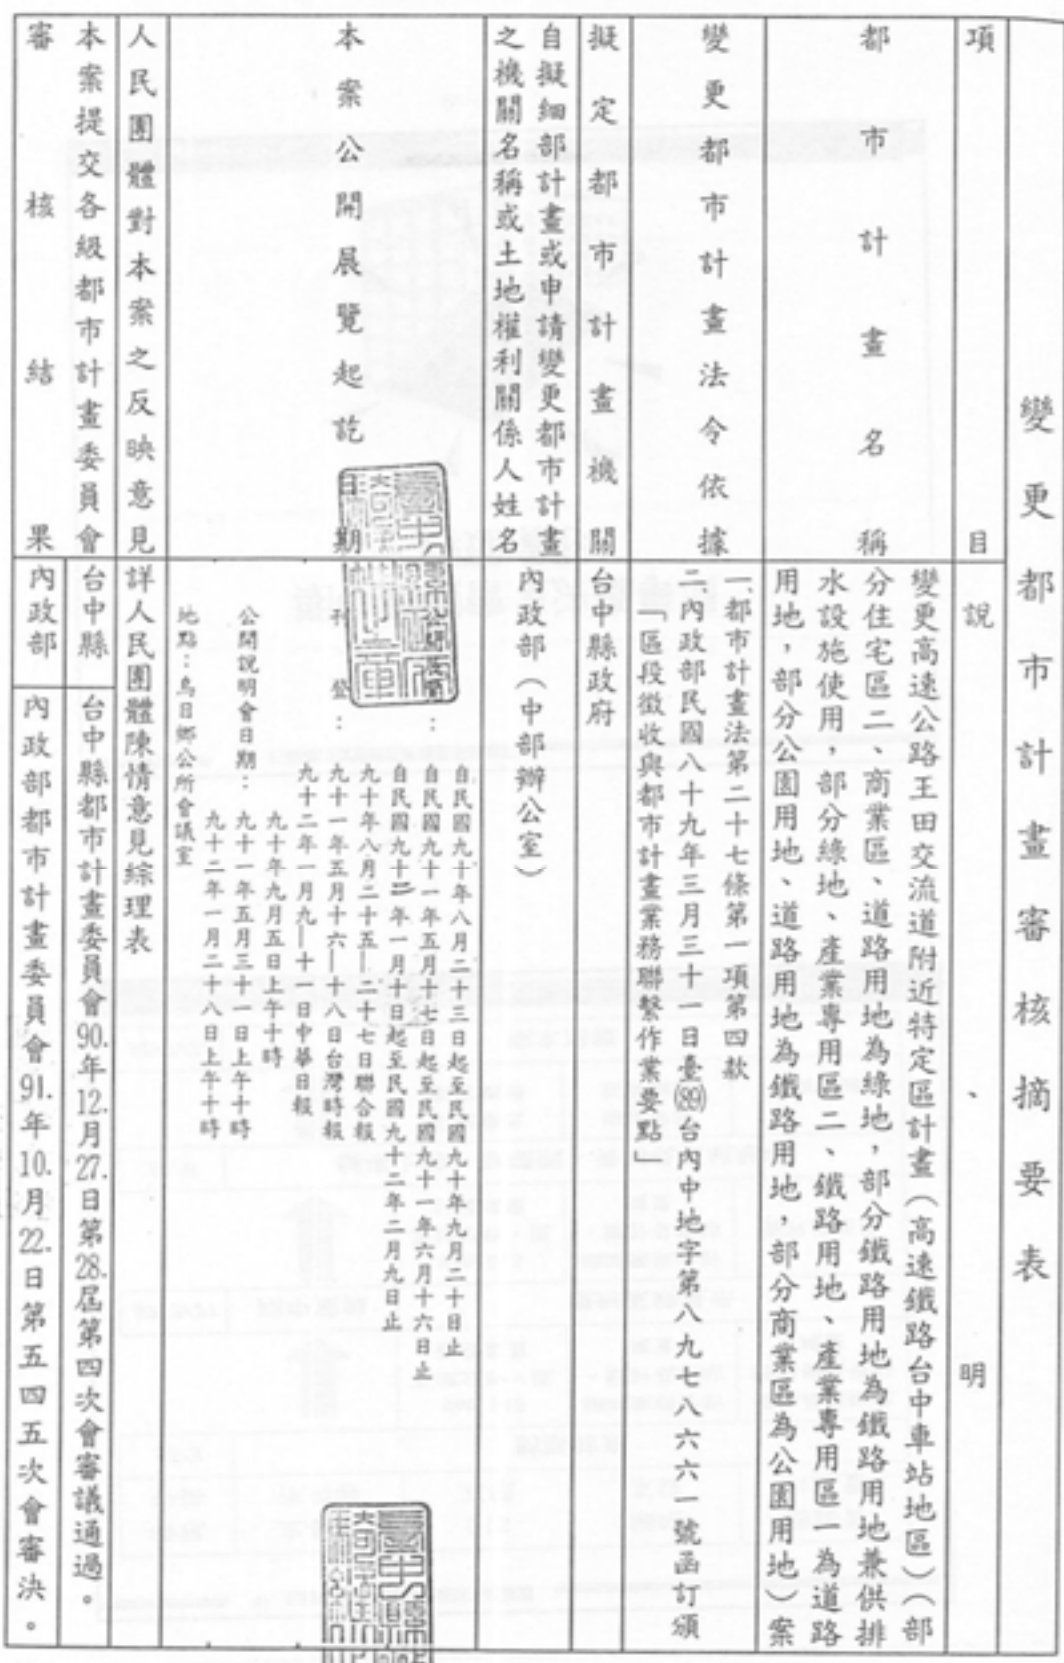 變更都市計畫審核摘要表
項目
說、明
都市計畫名稱
變更高速公路王田交流道附近特定區計畫（高速鐵路台中車站地區）（部
分住宅區二、商業區、道路用地為綠地，部分鐵路用地為鐵路用地兼供排
水設施使用，部分綠地、產業專用區二、鐵路用地、產業專用區一為道路
用地，部分公園用地、道路用地為鐵路用地，部分商業區為公園用地）案
變更都市計畫法令依據
一、都市計畫法第二十七條第一項第四款
二、內政部民國八十九年三月三十一日臺(89)台內中地字第八九七八六六一號函訂頒
「區段徵收與都市計畫業務聯繫作業要點」
擬定都市計畫機關
台中縣政府
自擬細部計畫或申請變更都市計畫
之機關名稱或土地權利關係人姓名
內政部（中部辦公室）
本案公開展覽起訖日期
公開展覽：
自民國九十年八月二十三日起至民國九十年九月二十日止
自民國九十一年五月十七日起至民國九十一年六月十六日止
自民國九十二年一月十日起至民國九十二年二月九日止
刊登：
九十年八月二十五—二十七日聯合報
九十一年五月十六—十八日台灣時報
九十二年一月九—十一日中華日報
公開說明會日期：
九十年九月五日上午十時
九十一年五月三十一日上午十時
九十二年一月二十八日上午十時
地點：烏日鄉公所會議室
人民團體對本案之反映意見
詳人民團體陳情意見綜理表
本案提交各級都市計畫委員會
審核結果
台中縣
台中縣都市計畫委員會90.年12.月27.日第28.屆第四次會審議通過。
內政部
內政部都市計畫委員會91.年10.月22.日第五四五次會審決。